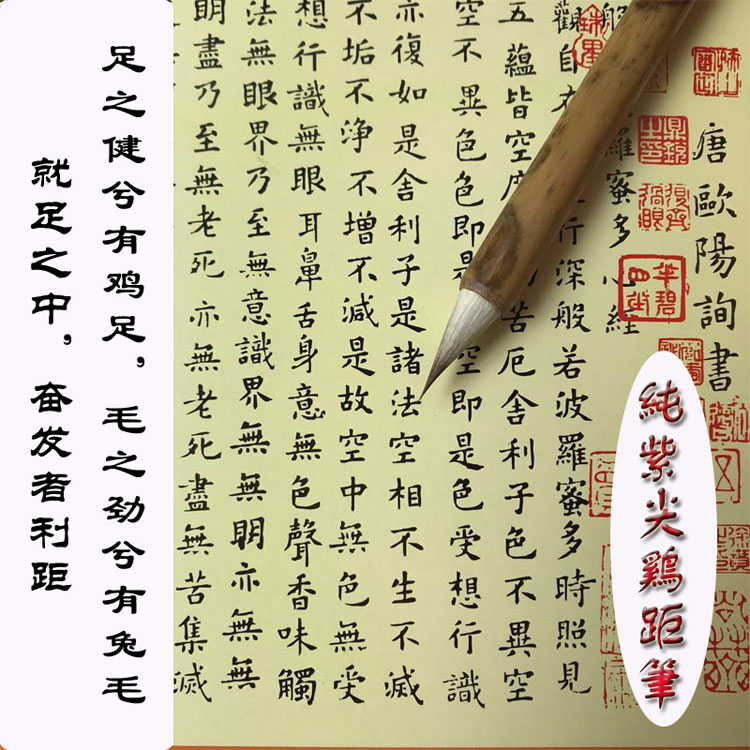 唐歐陽詢書
般羅蜜多心經
觀自在行深般若波羅蜜多時照見
五蘊皆空度苦厄舍利子色不異空
空不異色色即是空即是色受想行識
亦復如是舍利子是諸法空相不生不滅
不垢不淨不增不減是故空中無色無受
想行識無眼耳鼻舌身意無色聲香味觸
法無眼界乃至無意識界無無明亦無無
明盡乃至無老死亦無老死盡無苦集滅
純紫尖鷄距筆
足之健兮有鸡足，毛之劲兮有兔毛
就足之中，奋发者利距